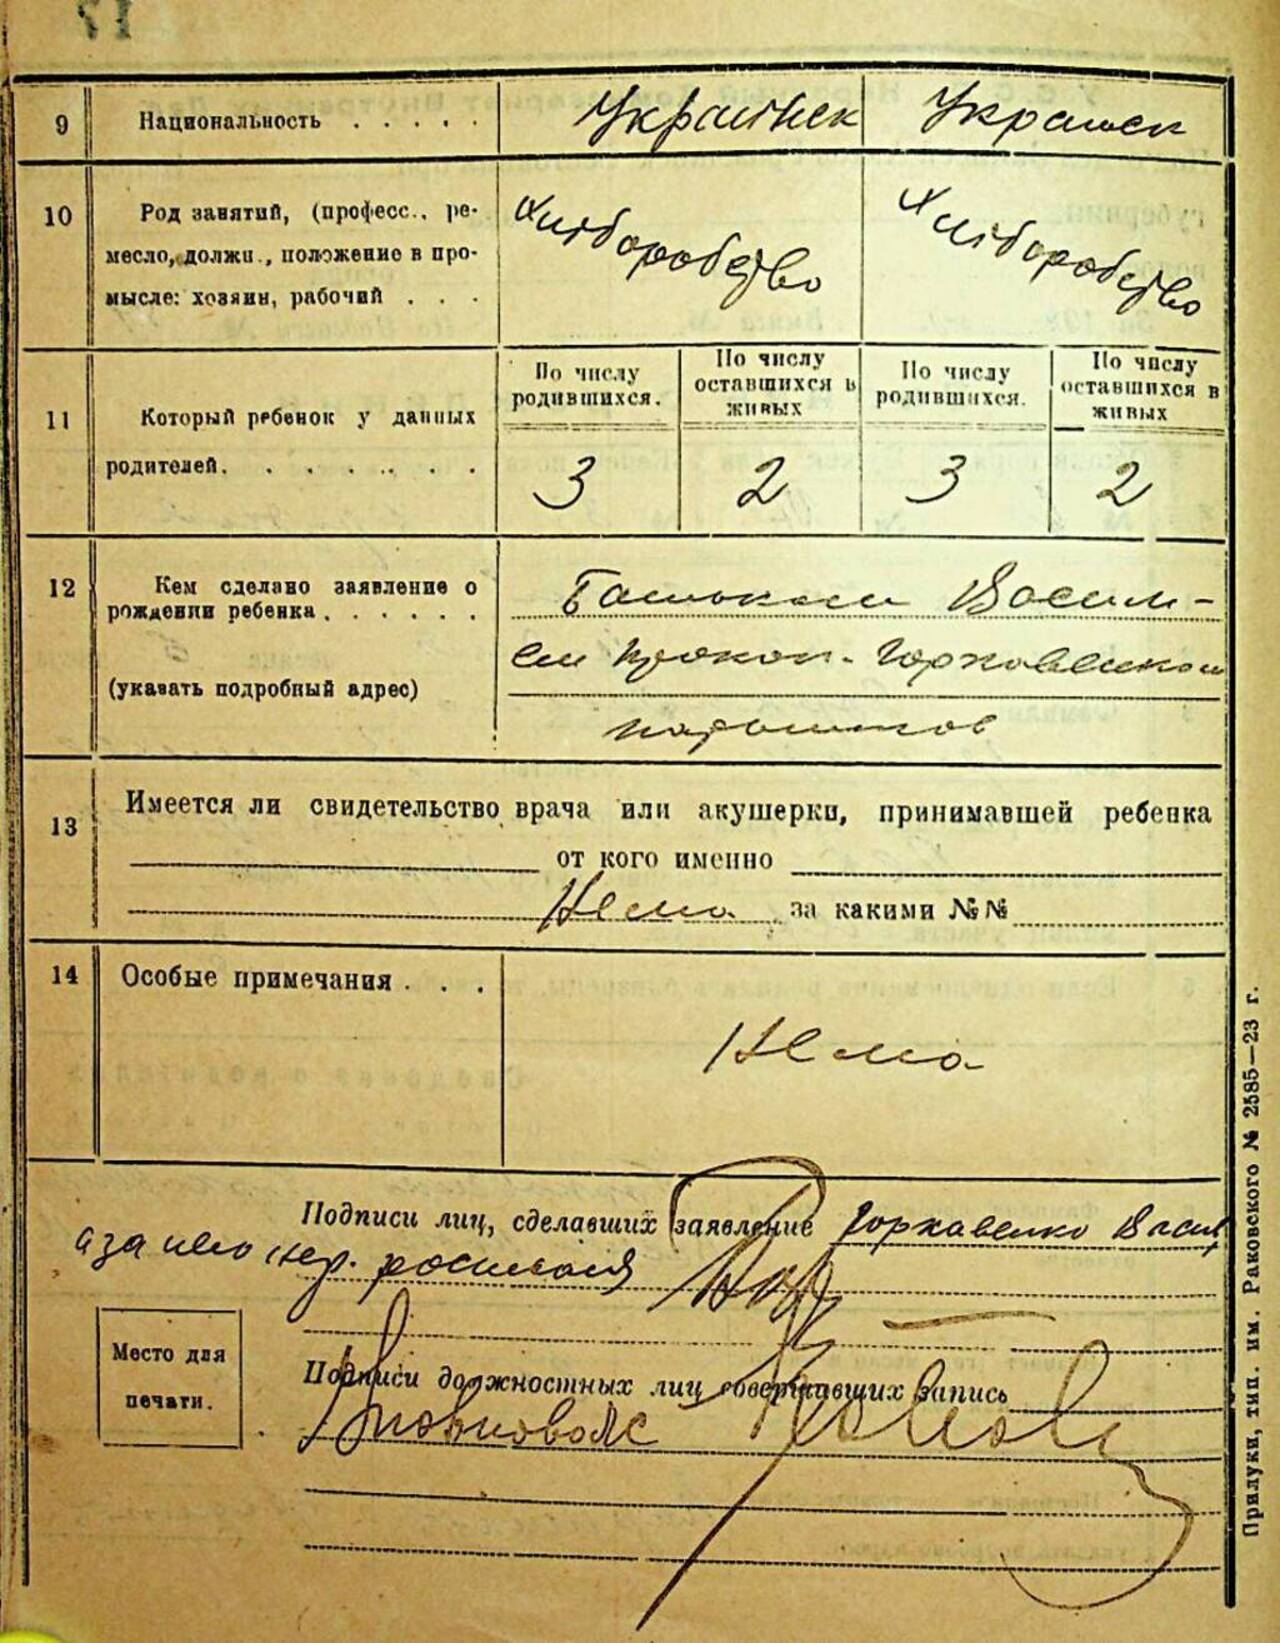 17
9 Национальность . . . . . Украінек Украинек
10 Род занятий, (професс., ре-
месло, должн., положение в про-
мысле: хозяин, рабочий . . .
Хліборобство Хліборобство
11 Который ребенок у данных
родителей. . . . . . . .
По числу
родившихся.
По числу
оставшихся в
живых
По числу
родившихся.
По числу
оставшихся в
живых
3 2 3 2
12 Кем сделано заявление о
рождении ребенка . . . . . .
(указать подробный адрес)
Батьком Васил-
ем Прокоп. Горкавенком
13 Имеется ли свидетельство врача или акушерки, принимавшей ребенка
от кого именно
Нема за какими №№
14 Особые примечания . . .
Нема
Подписи лиц, сделавших заявление Горкавенко Васил
а за него
Место для
печати.
Подписи должностных лиц совершавших запись
Прилуки, тип. им. Раковского № 2585—23 г.